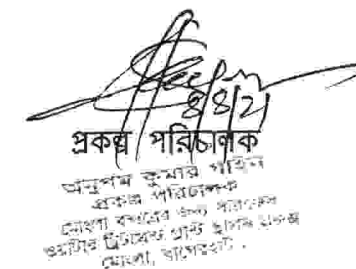 8/8/21
প্রকল্প পরিচালক
অনুপম কুমার গাইন
প্রকল্প পরিচালক
মোংলা বন্দরের জন্য
ওয়াটার ট্রিটমেন্ট প্লান্ট স্থাপন প্রকল্প
মোংলা, বাগেরহাট।